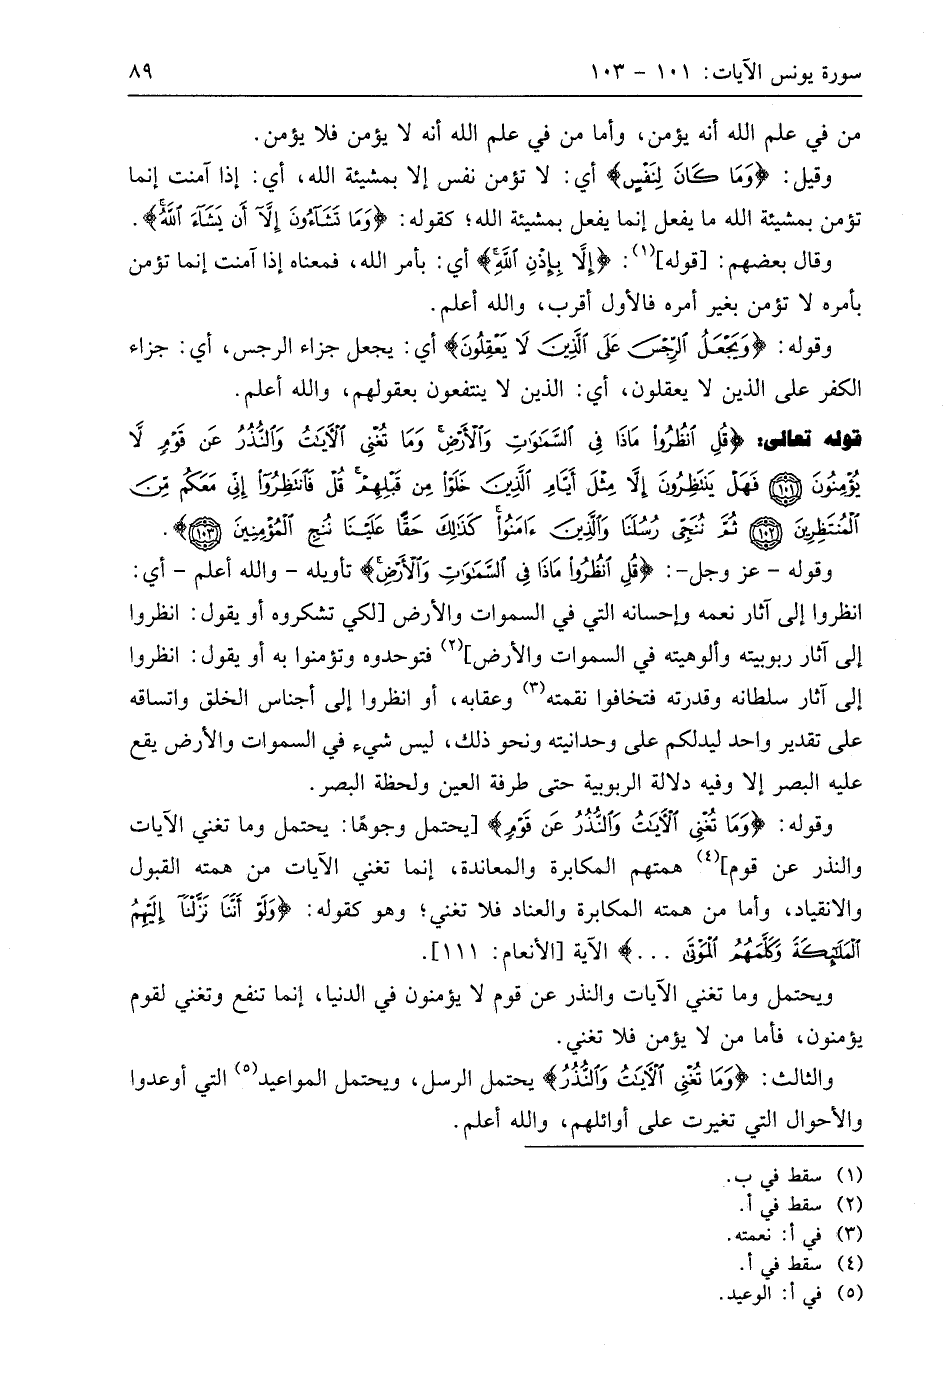 سورة يونس الآيات: ١٠١ – ١٠٣ ٨٩
من في علم الله أنه يؤمن، وأما من في علم الله أنه لا يؤمن فلا يؤمن.
وقيل: ﴿وَمَا كَانَ لِنَفْسٍ﴾ أي: لا تؤمن نفس إلا بمشيئة الله، أي: إذا آمنت إنما
تؤمن بمشيئة الله ما يفعل إنما يفعل بمشيئة الله؛ كقوله: ﴿وَمَا تَشَآءُونَ إِلَّآ أَن يَشَآءَ ٱللَّهُۚ﴾.
وقال بعضهم: [قوله](١): ﴿إِلَّا بِإِذْنِ ٱللَّهِۚ﴾ أي: بأمر الله، فمعناه إذا آمنت إنما تؤمن
بأمره لا تؤمن بغير أمره فالأول أقرب، والله أعلم.
وقوله: ﴿وَيَجْعَلُ ٱلرِّجْسَ عَلَى ٱلَّذِينَ لَا يَعْقِلُونَ﴾ أي: يجعل جزاء الرجس، أي: جزاء
الكفر على الذين لا يعقلون، أي: الذين لا ينتفعون بعقولهم، والله أعلم.
قوله تعالى: ﴿قُلِ ٱنظُرُوا۟ مَاذَا فِى ٱلسَّمَٰوَٰتِ وَٱلْأَرْضِۚ وَمَا تُغْنِى ٱلْءَايَٰتُ وَٱلنُّذُرُ عَن قَوْمٍ لَّا
يُؤْمِنُونَ ١٠١ فَهَلْ يَنتَظِرُونَ إِلَّا مِثْلَ أَيَّامِ ٱلَّذِينَ خَلَوْا۟ مِن قَبْلِهِمْۚ قُلْ فَٱنتَظِرُوٓا۟ إِنِّى مَعَكُم مِّنَ
ٱلْمُنتَظِرِينَ ١٠٢ ثُمَّ نُنَجِّى رُسُلَنَا وَٱلَّذِينَ ءَامَنُوا۟ۚ كَذَٰلِكَ حَقًّا عَلَيْنَا نُنجِ ٱلْمُؤْمِنِينَ ١٠٣﴾.
وقوله – عز وجل–: ﴿قُلِ ٱنظُرُوا۟ مَاذَا فِى ٱلسَّمَٰوَٰتِ وَٱلْأَرْضِۚ﴾ تأويله – والله أعلم – أي:
انظروا إلى آثار نعمه وإحسانه التي في السموات والأرض [لكي تشكروه أو يقول: انظروا
إلى آثار ربوبيته وألوهيته في السموات والأرض](٢) فتوحدوه وتؤمنوا به أو يقول: انظروا
إلى آثار سلطانه وقدرته فتخافوا نقمته(٣) وعقابه، أو انظروا إلى أجناس الخلق واتساقه
على تقدير واحد ليدلكم على وحدانيته ونحو ذلك، ليس شيء في السموات والأرض يقع
عليه البصر إلا وفيه دلالة الربوبية حتى طرفة العين ولحظة البصر.
وقوله: ﴿وَمَا تُغْنِى ٱلْءَايَٰتُ وَٱلنُّذُرُ عَن قَوْمٍ﴾ [يحتمل وجوهًا: يحتمل وما تغني الآيات
والنذر عن قوم](٤) همتهم المكابرة والمعاندة، إنما تغني الآيات من همته القبول
والانقياد، وأما من همته المكابرة والعناد فلا تغني؛ وهو كقوله: ﴿وَلَوْ أَنَّنَا نَزَّلْنَآ إِلَيْهِمُ
ٱلْمَلَٰٓئِكَةَ وَكَلَّمَهُمُ ٱلْمَوْتَىٰ ...﴾ الآية [الأنعام: ١١١].
ويحتمل وما تغني الآيات والنذر عن قوم لا يؤمنون في الدنيا، إنما تنفع وتغني لقوم
يؤمنون، فأما من لا يؤمن فلا تغني.
والثالث: ﴿وَمَا تُغْنِى ٱلْءَايَٰتُ وَٱلنُّذُرُ﴾ يحتمل الرسل، ويحتمل المواعيد(٥) التي أوعدوا
والأحوال التي تغيرت على أوائلهم، والله أعلم.
(١) سقط في ب.
(٢) سقط في أ.
(٣) في أ: نعمته.
(٤) سقط في أ.
(٥) في أ: الوعيد.